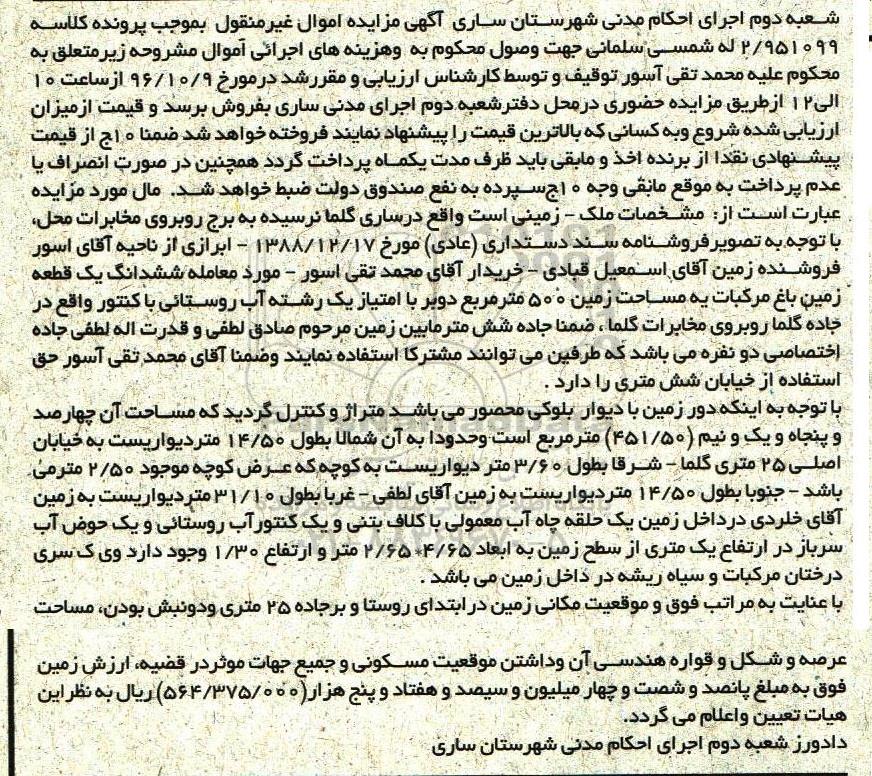 شعبه دوم اجرای احکام مدنی شهرستان ساری آگهی مزایده اموال غیرمنقول بموجب پرونده کلاسه
۲/۹۵۱۰۹۹ له شمسی سلمانی جهت وصول محکوم به وهزینه های اجرائی آموال مشروحه زیرمتعلق به
محکوم علیه محمد تقی آسور توقیف و توسط کارشناس ارزیابی و مقررشد درمورخ ۹۶/۱۰/۹ ازساعت ۱۰
الی۱۲ ازطریق مزایده حضوری درمحل دفترشعبه دوم اجرای مدنی ساری بفروش برسد و قیمت ازمیزان
ارزیابی شده شروع وبه کسانی که بالاترین قیمت را پیشنهاد نمایند فروخته خواهد شد ضمنا ۱۰ج از قیمت
پیشنهادی نقدا از برنده اخذ و مابقی باید ظرف مدت یکماه پرداخت گردد همچنین در صورت انصراف یا
عدم پرداخت به موقع مابقی وجه ۱۰ج‌سپرده به نفع صندوق دولت ضبط خواهد شد. مال مورد مزایده
عبارت است از: مشخصات ملک - زمینی است واقع درساری گلما نرسیده به برج روبروی مخابرات محل،
با توجه به تصویرفروشنامه سند دستداری (عادی) مورخ ۱۳۸۸/۱۲/۱۷ - ابرازی از ناحیه آقای اسور
فروشنده زمین آقای اسمعیل قبادی - خریدار آقای محمد تقی اسور - مورد معامله ششدانگ یک قطعه
زمین باغ مرکبات یه مساحت زمین ۵۰۰ مترمربع دوبر با امتیاز یک رشته آب روستائی با کنتور واقع در
جاده گلما روبروی مخابرات گلما، ضمنا جاده شش مترمابین زمین مرحوم صادق لطفی و قدرت اله لطفی جاده
اختصاصی دو نفره می باشد که طرفین می توانند مشترکا استفاده نمایند وضمنا آقای محمد تقی آسور حق
استفاده از خیابان شش متری را دارد .
با توجه به اینکه دور زمین با دیوار بلوکی محصور می باشد متراژ و کنترل گردید که مساحت آن چهارصد
و پنجاه و یک و نیم (۴۵۱/۵۰) مترمربع است وحدودا به آن شمالا بطول ۱۴/۵۰ متردیواریست به خیابان
اصلی ۲۵ متری گلما - شرقا بطول ۳/۶۰ متر دیواریست به کوچه که عرض کوچه موجود ۲/۵۰ مترمی
باشد - جنوبا بطول ۱۴/۵۰ متردیواریست به زمین آقای لطفی - غربا بطول ۳۱/۱۰ متردیواریست به زمین
آقای خلردی درداخل زمین یک حلقه چاه آب معمولی با کلاف بتنی و یک کنتورآب روستائی و یک حوض آب
سرباز در ارتفاع یک متری از سطح زمین به ابعاد ۴/۶۵*۲/۶۵ متر و ارتفاع ۱/۳۰ وجود دارد وی ک سری
درختان مرکبات و سیاه ریشه در داخل زمین می باشد .
با عنایت به مراتب فوق و موقعیت مکانی زمین درابتدای روستا و برجاده ۲۵ متری ودونبش بودن، مساحت
عرصه و شکل و قواره هندسی آن وداشتن موقعیت مسکونی و جمیع جهات موثردر قضیه، ارزش زمین
فوق به مبلغ پانصد و شصت و چهار میلیون و سیصد و هفتاد و پنج هزار(۵۶۴/۳۷۵/۰۰۰) ریال به نظراین
هیات تعیین واعلام می گردد.
دادورز شعبه دوم اجرای احکام مدنی شهرستان ساری